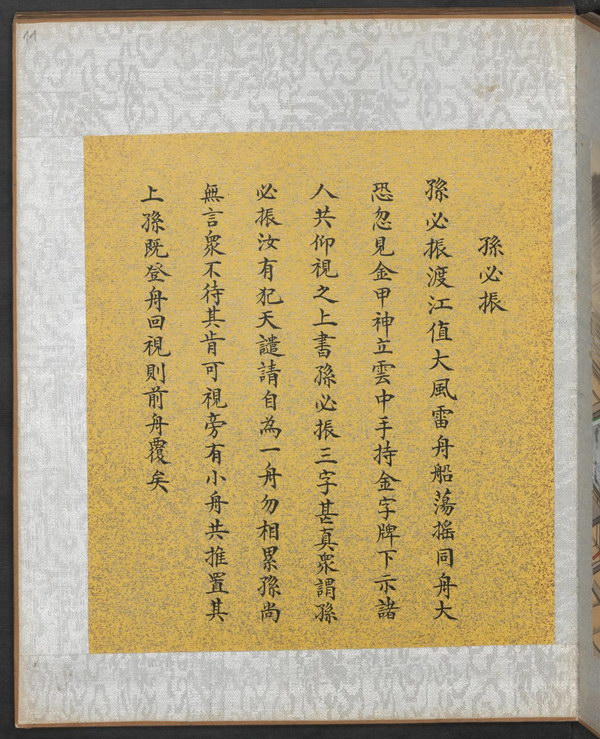 11
孫必振
孫必振渡江值大風雷舟船蕩搖同舟大
恐忽見金甲神立雲中手持金字牌下示諸
人共仰視之上書孫必振三字甚真眾謂孫
必振汝有犯天譴請自為一舟勿相累孫尚
無言眾不待其肯可視旁有小舟共推置其
上孫既登舟回視則前舟覆矣